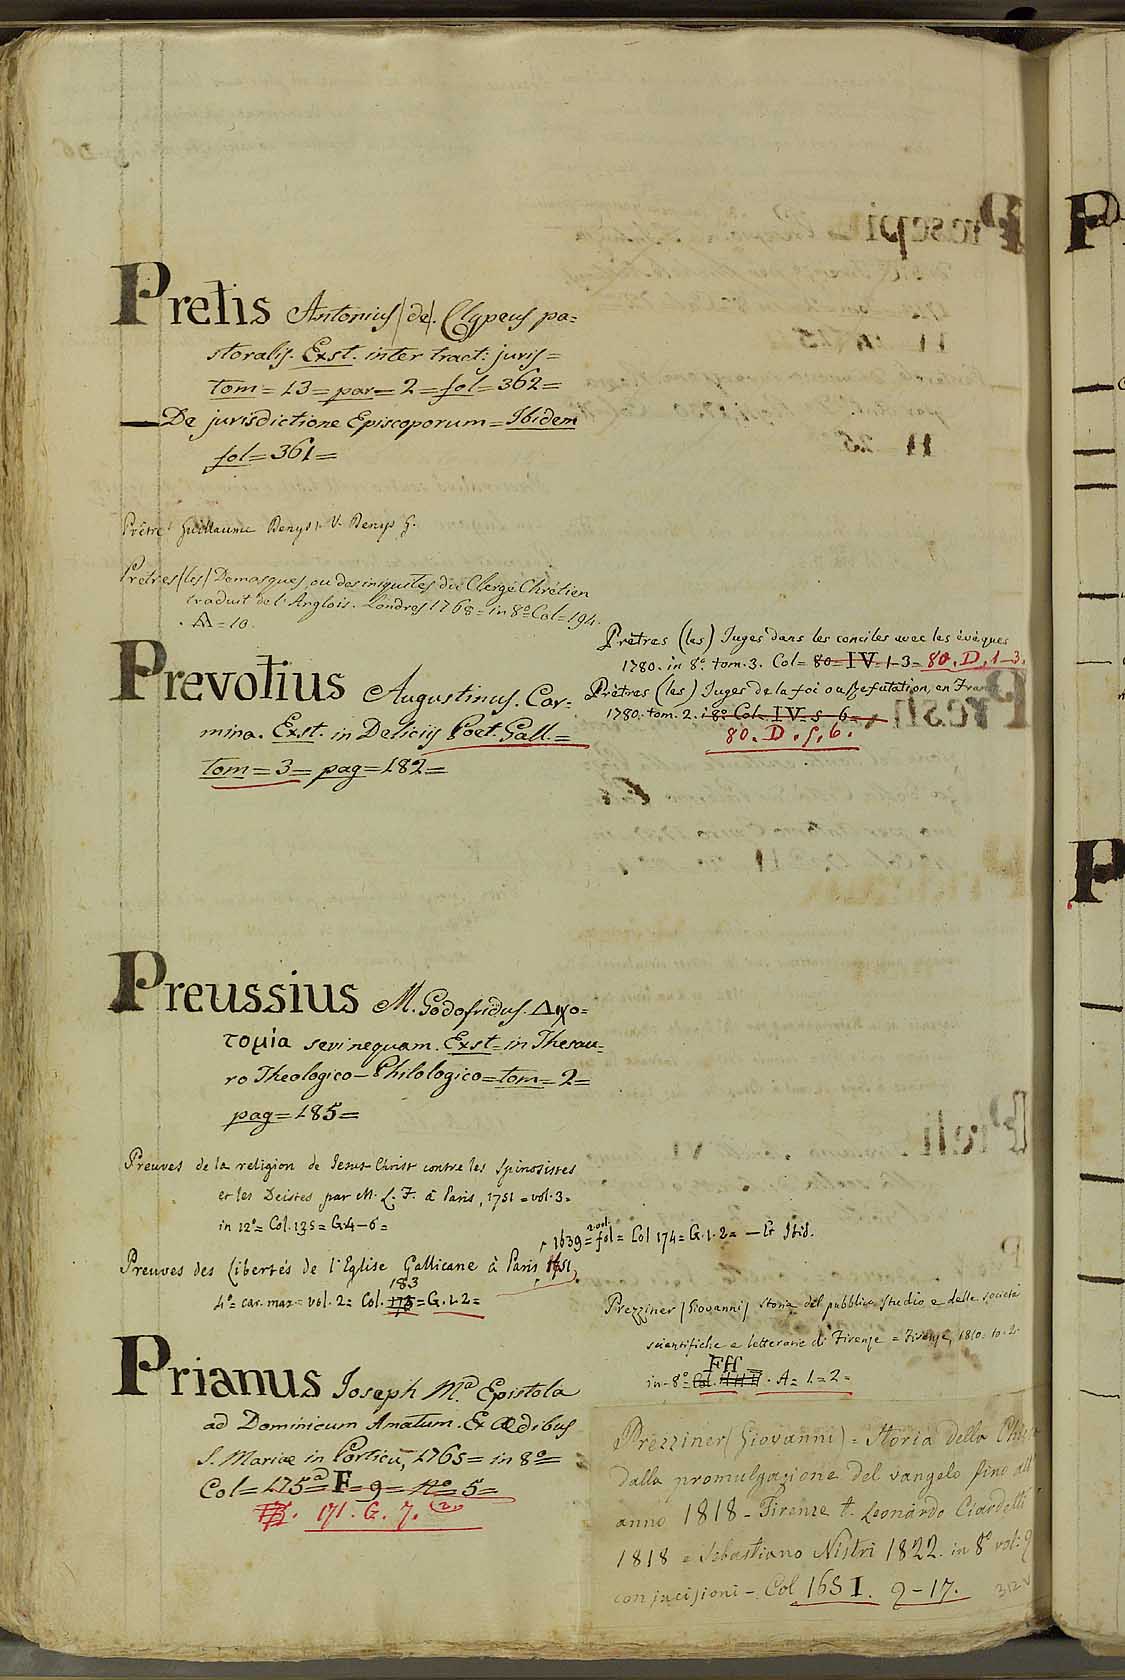 Pretis Antonius (de). Clypeus pa=
storalis. Exst. inter tract: juris=
tom=13=par=2=fol=362=
—De jurisdictione Episcoporum=Ibidem
fol=361=
Prêtre Guillaume Denys. V. Denys G.
Prêtres (les) Demasques, ou des iniquites du Clergé Chrétien
traduit de l'Anglois. Londres 1768=in 8º Col=194.
A=10.
Prevotius Augustinus. Car=
mina. Exst. in Deliciis Poet. Gall.=
tom=3=pag=182=
Preussius M. Godofridus. Διχο=
τομία sevi nequam. Exst=in Thesau=
ro Theologico-Philologico=tom=2=
pag=185=
Preuves de la religion de Jesus-Christ contre les Spinosistes
et les Deistes par M. L. F. à Paris, 1751=vol. 3=
in 12º=Col. 135=G.4-6=
1639=2 vol. fol=Col 174=G.1.2=—Et Ibid.
Preuves des Libertés de l'Eglise Gallicane à Paris 1651,
183
4º=car. max=vol. 2=Col. 175=G.1.2=
Prianus Joseph M.ª Epistola
ad Dominicum Amatum. Ex Ædibus
S. Mariæ in Porticu, 1765=in 8º=
Col=175ª F=9=nº 5=
171. G. 7.
Prêtres (les) Juges dans les conciles avec les évêques
1780. in 8º. tom. 3. Col=80=IV.1-3=80. D. 1-3.
Prêtres (les) Juges de la foi ou Refutation, en France
1780. tom. 2. i 8º Col. IV=5-6=
80. D. 5. 6.
Prezziner (Giovanni) storia del pubblico studio e delle società
scientifiche e letterarie di Firenze=Firenze, 1810. to. 2.
Fff
in-8º=Col. A=1=2=
Prezziner (Giovanni)=Storia della Chiesa
dalla promulgazione del vangelo fino all'
anno 1818-Firenze t. Leonardo Ciardetti
1818 e Sebastiano Nistri 1822. in 8º vol: 9
con incisioni-Col 168 I. 9-17.
312